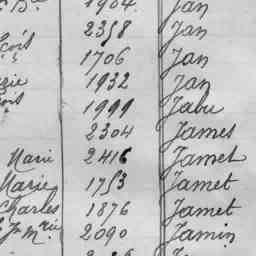 1904. Jan
2358 Jan
çois 1706 Jan
1932 Jan
çois 1999 Jabu
2304 James
Marie 2416 Jamet
Marie 1753 Jamet
Charles 1876 Jamet
Jn Mrie 2090 Jamin